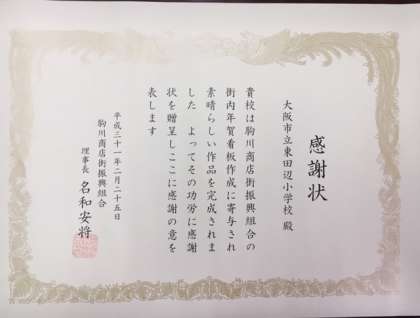 感謝状
大阪市立東田辺小学校 殿
貴校は駒川商店街振興組合の
街内年賀看板作成に寄与され
素晴らしい作品を完成されま
した よってその功労に感謝
状を贈呈しここに感謝の意を
表します
平成三十一年二月二十五日
駒川商店街振興組合
理事長 名和安将